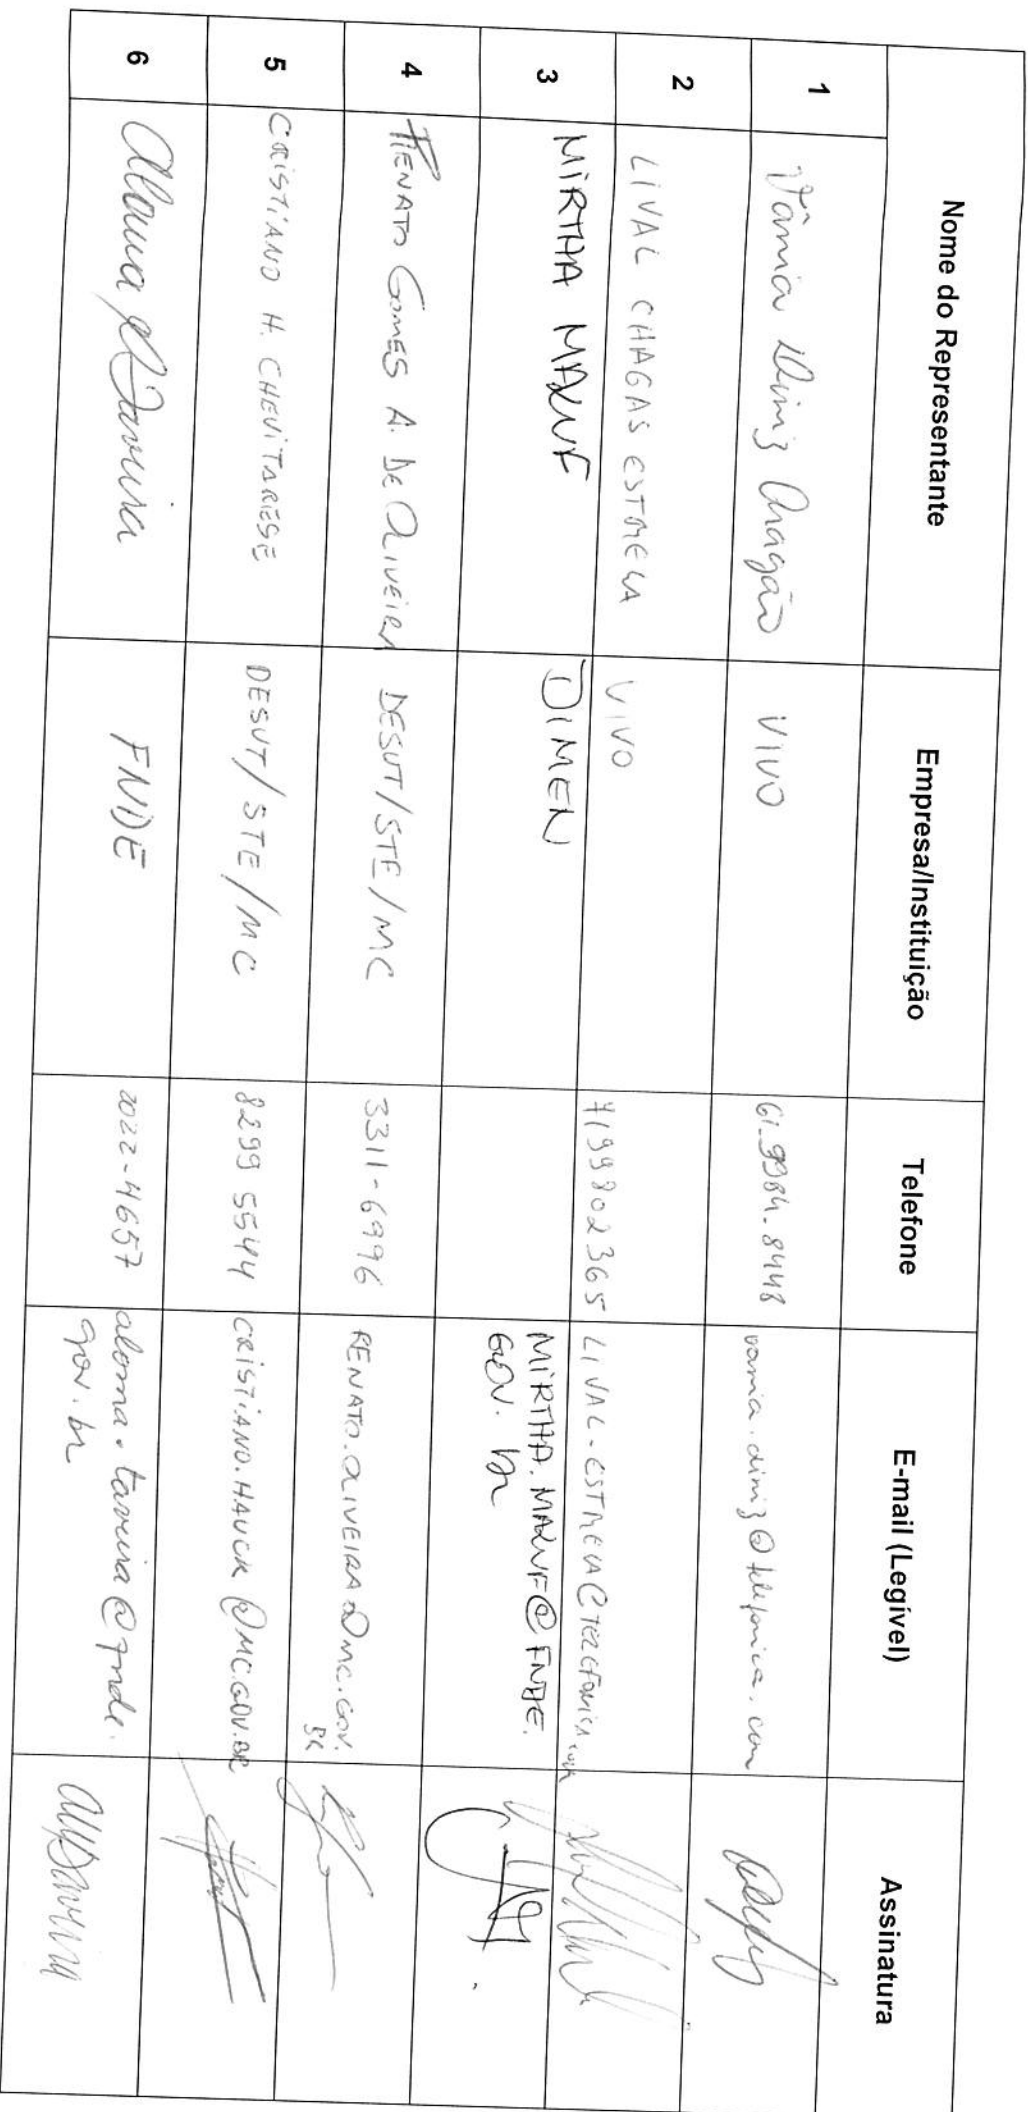 Nome do Representante Empresa/Instituição Telefone E-mail (Legível) Assinatura
1 Vânia Diniz Aragão VIVO 61_9984_8448 vania.diniz@telefonica.com
2 LIVAL CHAGAS ESTRELA VIVO 7199802365 LIVAL.ESTRELA@TELEFONICA.COM
3 MIRTHA MALUF DIMEN MIRTHA.MALUF@FNDE.
GOV.br
4 RENATO GOMES A. DE OLIVEIRA DESUT/STE/MC 3311-6996 RENATO.OLIVEIRA@MC.GOV.
BR
5 CRISTIANO H. CHEVITARESE DESUT/STE/MC 8299 5544 CRISTIANO.HAUCK@MC.GOV.BR
6 Aloma Taveira FNDE 2022-4657 aloma.taveira@fnde.
gov.br